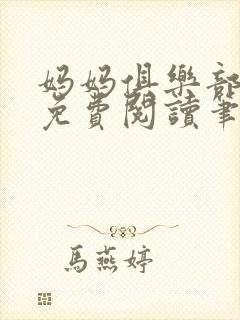 媽媽俱樂部
免費閱讀筆
馬燕婷